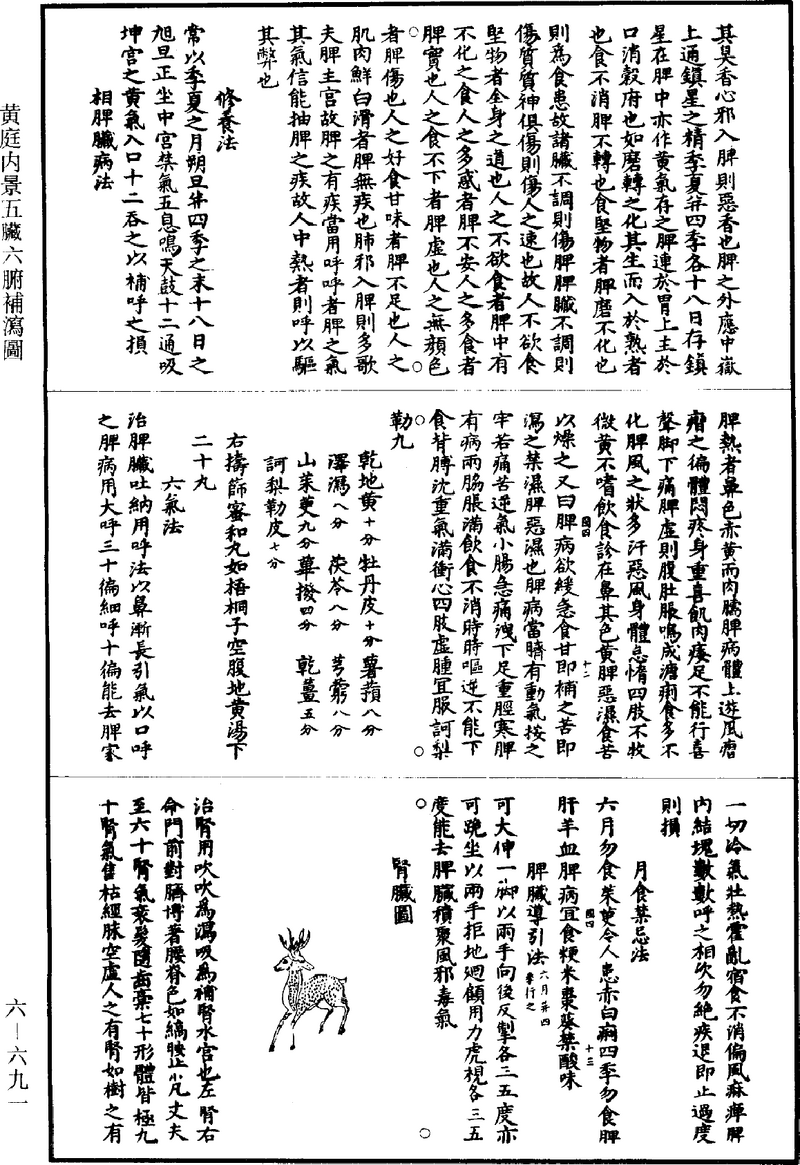 黃庭内景五臟六腑補瀉圖
六—六九一
其臭香心邪入脾則惡香也脾之外應中嶽
上通鎮星之精季夏并四季各十八日存鎮
星在脾中亦作黃氣存之脾連於胃上主於
口消穀府也如磨轉之化其生而入於熟者
也食不消脾不轉也食堅物者脾磨不化也
則為食患故諸臟不調則傷脾脾臟不調則
傷質質神俱傷則傷人之速也故人不欲食
堅物者全身之道也人之不欲食者脾中有
不化之食人之多惑者脾不安人之多食者
脾實也人之食不下者脾虛也人之無顏色
者脾傷也人之好食甘味者脾不足也人之
肌肉鮮白滑者脾無疾也肺邪入脾則多歌
夫脾主宫故脾之有疾當用呼呼者脾之氣
其氣信能抽脾之疾故人中熱者則呼以驅
其弊也
修養法
常以季夏之月朔旦并四季之末十八日之
旭旦正坐中宫禁氣五息鳴天鼓十二通吸
坤宫之黃氣入口十二吞之以補呼之損
相脾臟病法
脾熱者鼻色赤黃而肉臑脾病體上遊風㿔
㿔之徧體悶疼身重喜飢肉痿足不能行喜
聲脚下痛脾虛則腹肚脹鳴成溏痢食多不
化脾風之狀多汗惡風身體怠惰四肢不收
微黃不嗜飲食診在鼻其色黃脾惡濕食苦
以燥之又曰脾病欲緩急食甘即補之苦即
瀉之禁濕脾惡濕也脾病當臍有動氣按之
牢若痛苦逆氣小腸急痛洩下足重脛寒脾
有病兩脇脹滿飲食不消時時嘔逆不能下
食背膊沈重氣滿衝心四肢虛腫宜服訶梨
勒丸
乾地黃十分 牡丹皮十分 薯蕷八分
澤瀉八分 茯苓八分 芎藭八分
山茱萸九分 蓽撥四分 乾薑五分
訶梨勒皮七分
右擣篩蜜和丸如梧桐子空腹地黃湯下
二十丸
六氣法
治脾臟吐納用呼法以鼻漸長引氣以口呼
之脾病用大呼三十徧細呼十徧能去脾家
一切冷氣壯熱霍亂宿食不消偏風麻痺脾
内結塊數數呼之相次勿絶疾退即止過度
則損
月食禁忌法
六月勿食茱萸令人患赤白痢四季勿食脾
肝羊血脾病宜食粳米棗葵禁酸味
脾臟導引法六月并四季行之
可大伸一脚以兩手向後反掣各三五度亦
可跪坐以兩手拒地廻顧用力虎視各三五
度能去脾臟積聚風邪毒氣
腎臟圖
治腎用吹吹為瀉吸為補腎水宫也左腎右
命門前對臍博著腰脊色如縞膜止凡丈夫
至六十腎氣衰髮墮齒槀七十形體皆極九
十腎氣焦枯經脉空虛人之有腎如樹之有